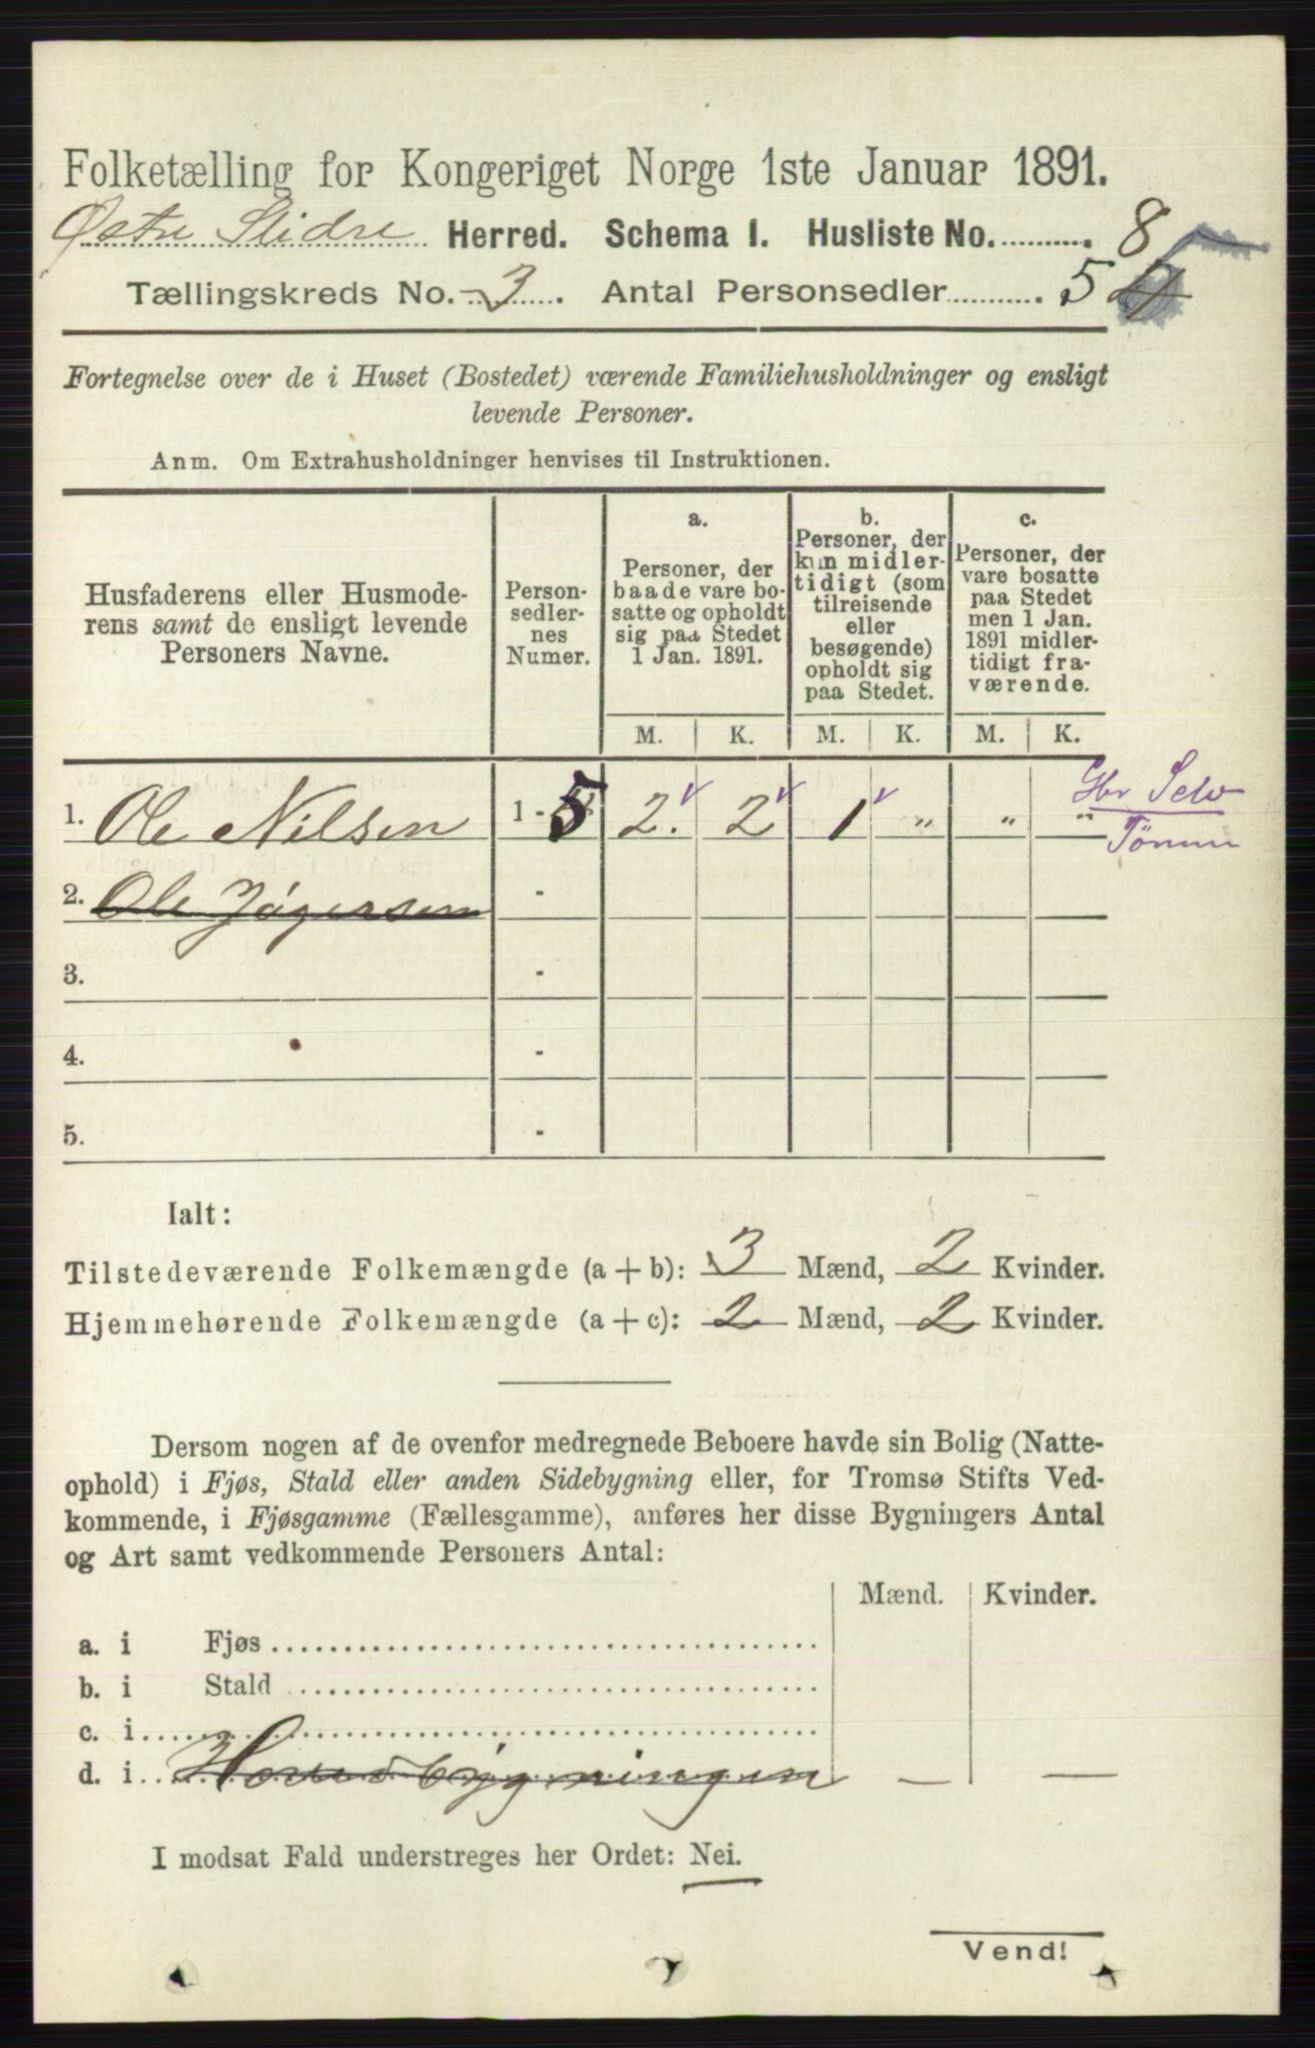 Folketælling for Kongeriget Norge 1ste Januar 1891.
Østre Slidre Herred. Schema I. Husliste No. 8
Tællingskreds No. 3. Antal Personsedler 5 4
Fortegnelse over de i Huset (Bostedet) værende Familiehusholdninger og ensligt
levende Personer.
Anm. Om Extrahusholdninger henvises til Instruktionen.
Husfaderens eller Husmode-
rens samt de ensligt levende
Personers Navne.
Person-
sedler-
nes
Numer.
a.
Personer, der
baade vare bo-
satte og opholdt
sig paa Stedet
1 Jan. 1891.
b.
Personer, der
kun midler-
tidigt (som
tilreisende
eller
besøgende)
opholdt sig
paa Stedet.
c.
Personer, der
vare bosatte
paa Stedet
men 1 Jan.
1891 midler-
tidigt fra-
værende.
M. K. M. K. M. K.
1. Ole Nilsen 1 - 5 2. 2 1 " " "
Hbr Selv
Tømm
2. Ole Jögersen -
3. -
4. -
5. -
Ialt:
Tilstedeværende Folkemængde (a + b): 3 Mænd, 2 Kvinder.
Hjemmehørende Folkemængde (a + c): 2 Mænd, 2 Kvinder.
Dersom nogen af de ovenfor medregnede Beboere havde sin Bolig (Natte-
ophold) i Fjøs, Stald eller anden Sidebygning eller, for Tromsø Stifts Ved-
kommende, i Fjøsgamme (Fællesgamme), anføres her disse Bygningers Antal
og Art samt vedkommende Personers Antal:
Mænd. Kvinder.
a. i Fjøs
b. i Stald
c. i
d. i Hovedbygningen — —
I modsat Fald understreges her Ordet: Nei.
Vend!